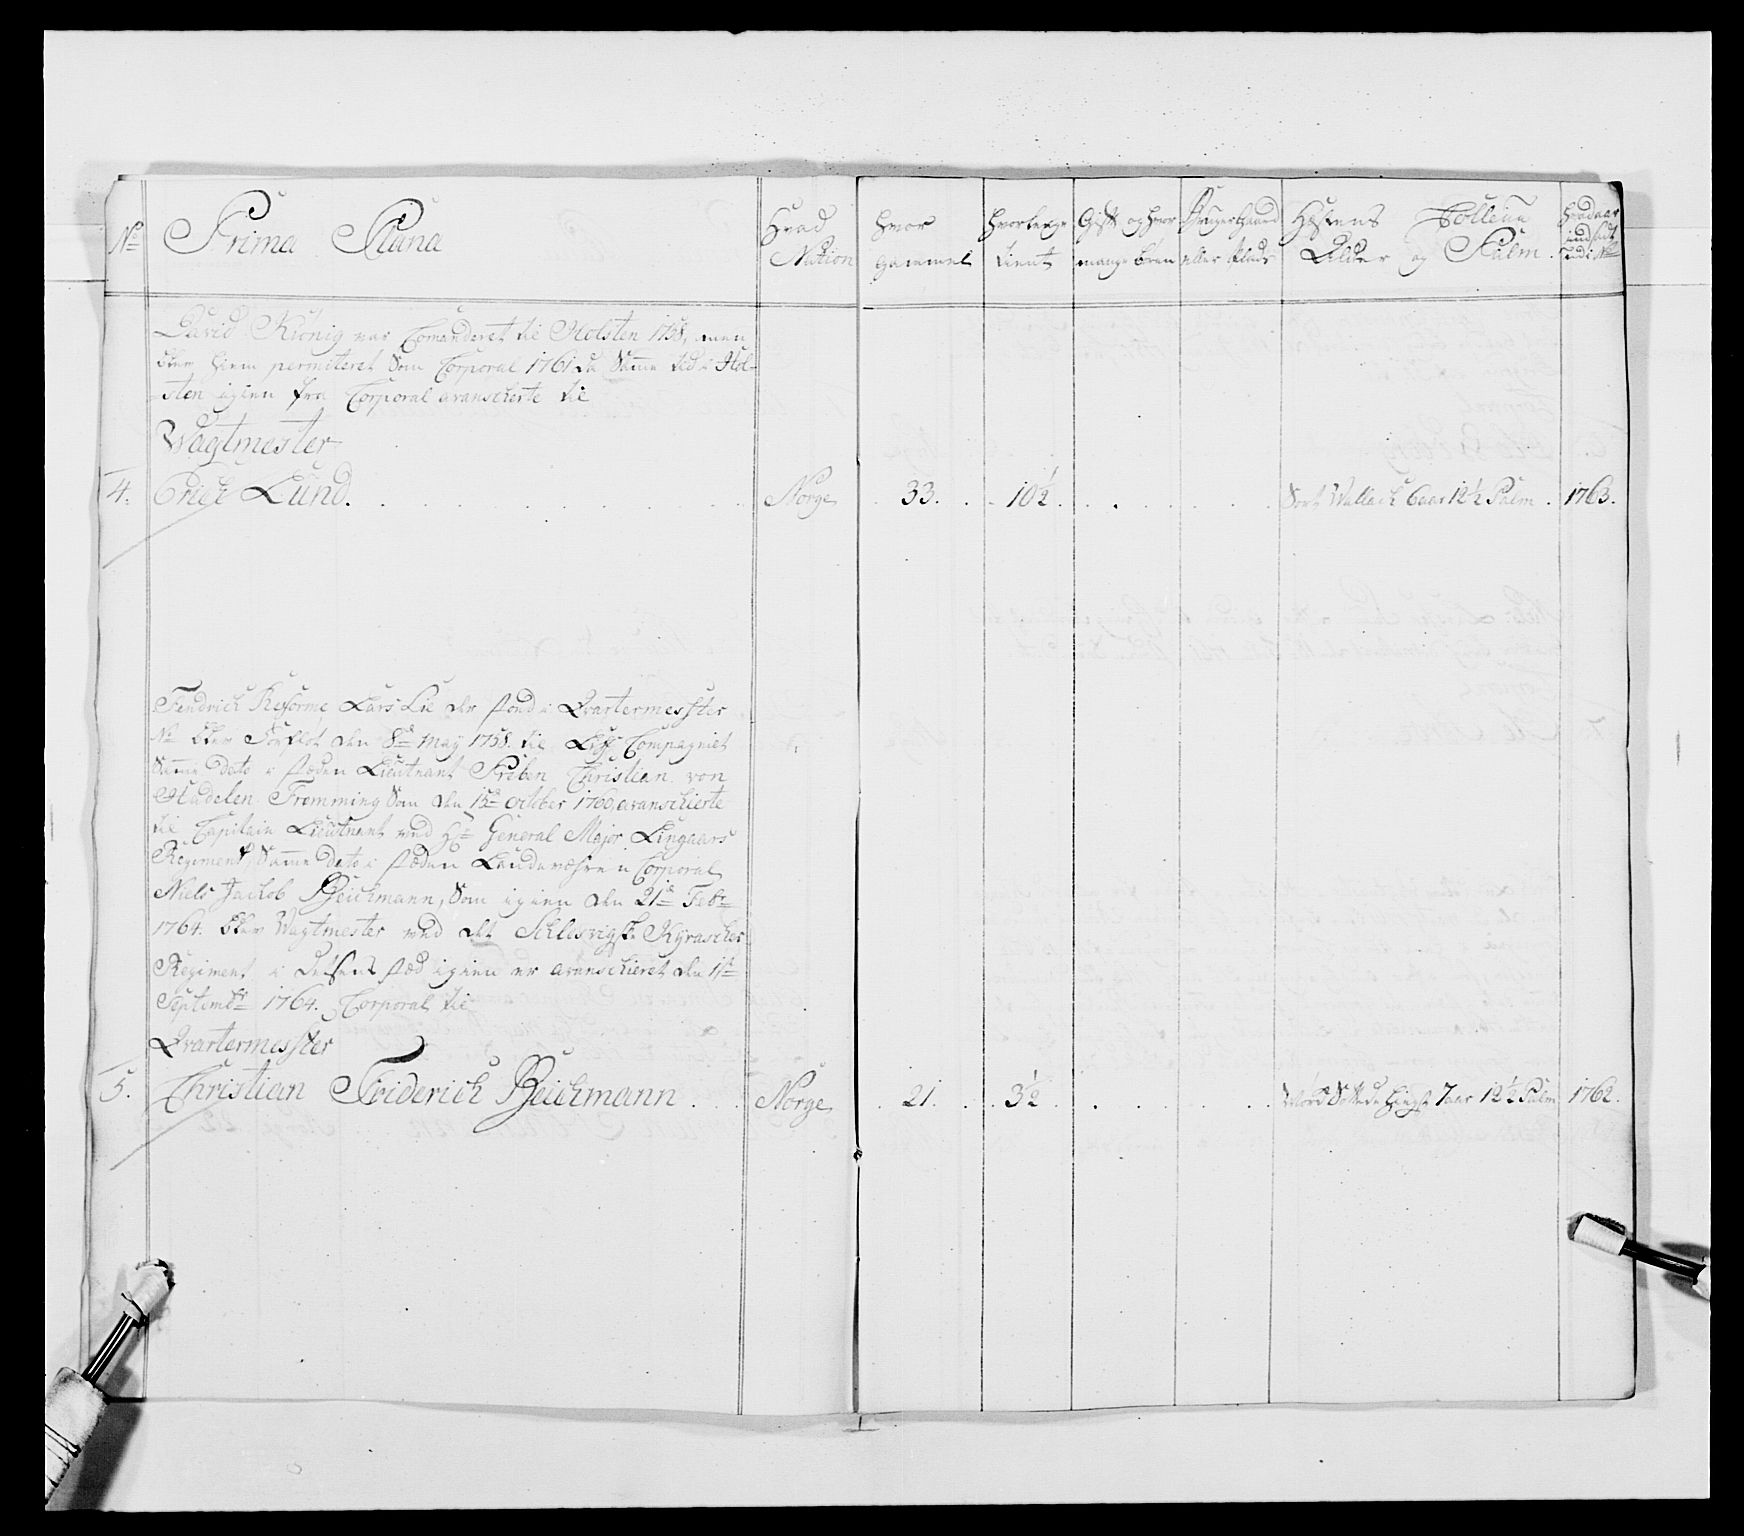 No Prima Plana Hvad Nation Hvor Gammel Hvorlenge tient Gift og hvor mange børn Bruger Gaard eller Plads Hæstens Couleur Alder og Palm Hvad aar
David König var Comanderet til Holsten 1758, men
blev hiem permitteret Som Corporal 1761 da Samme tid i Hol-
sten igien fra Corporal avanscherte til
Wagtmester
4. Erich Lund. Norge 33. 10½ Sort Wallack 6 aar 12½ Palm. 1763.
Fendrich Reforme Lars Lie der stond i Qvartermesster
No blev Forflöt den 8de May 1758. til Liff Compagniet
Samme Dato i stæden Lieutnant Preben Christian von
Hadelen Fromming Som den 15de october 1760, avanschierte
til Capitain Lieutnant ved Hr General Major Lingaars
Regiment, Samme Dato i stæden Landeværn Corporal
Niels Jackob Beichmann, Som igien den 21de Febr
1764. blev Wagtmester ved det Schlesvigske Kyrascher
Regiment i Detsens stæd igien er avanschieret den 11te
Septembr 1764. Corporal til
Qvartermesster
5. Christian Friderich Beichmann Norge 21. 3½ Hingst 7 aar 12½ Palm 1762.